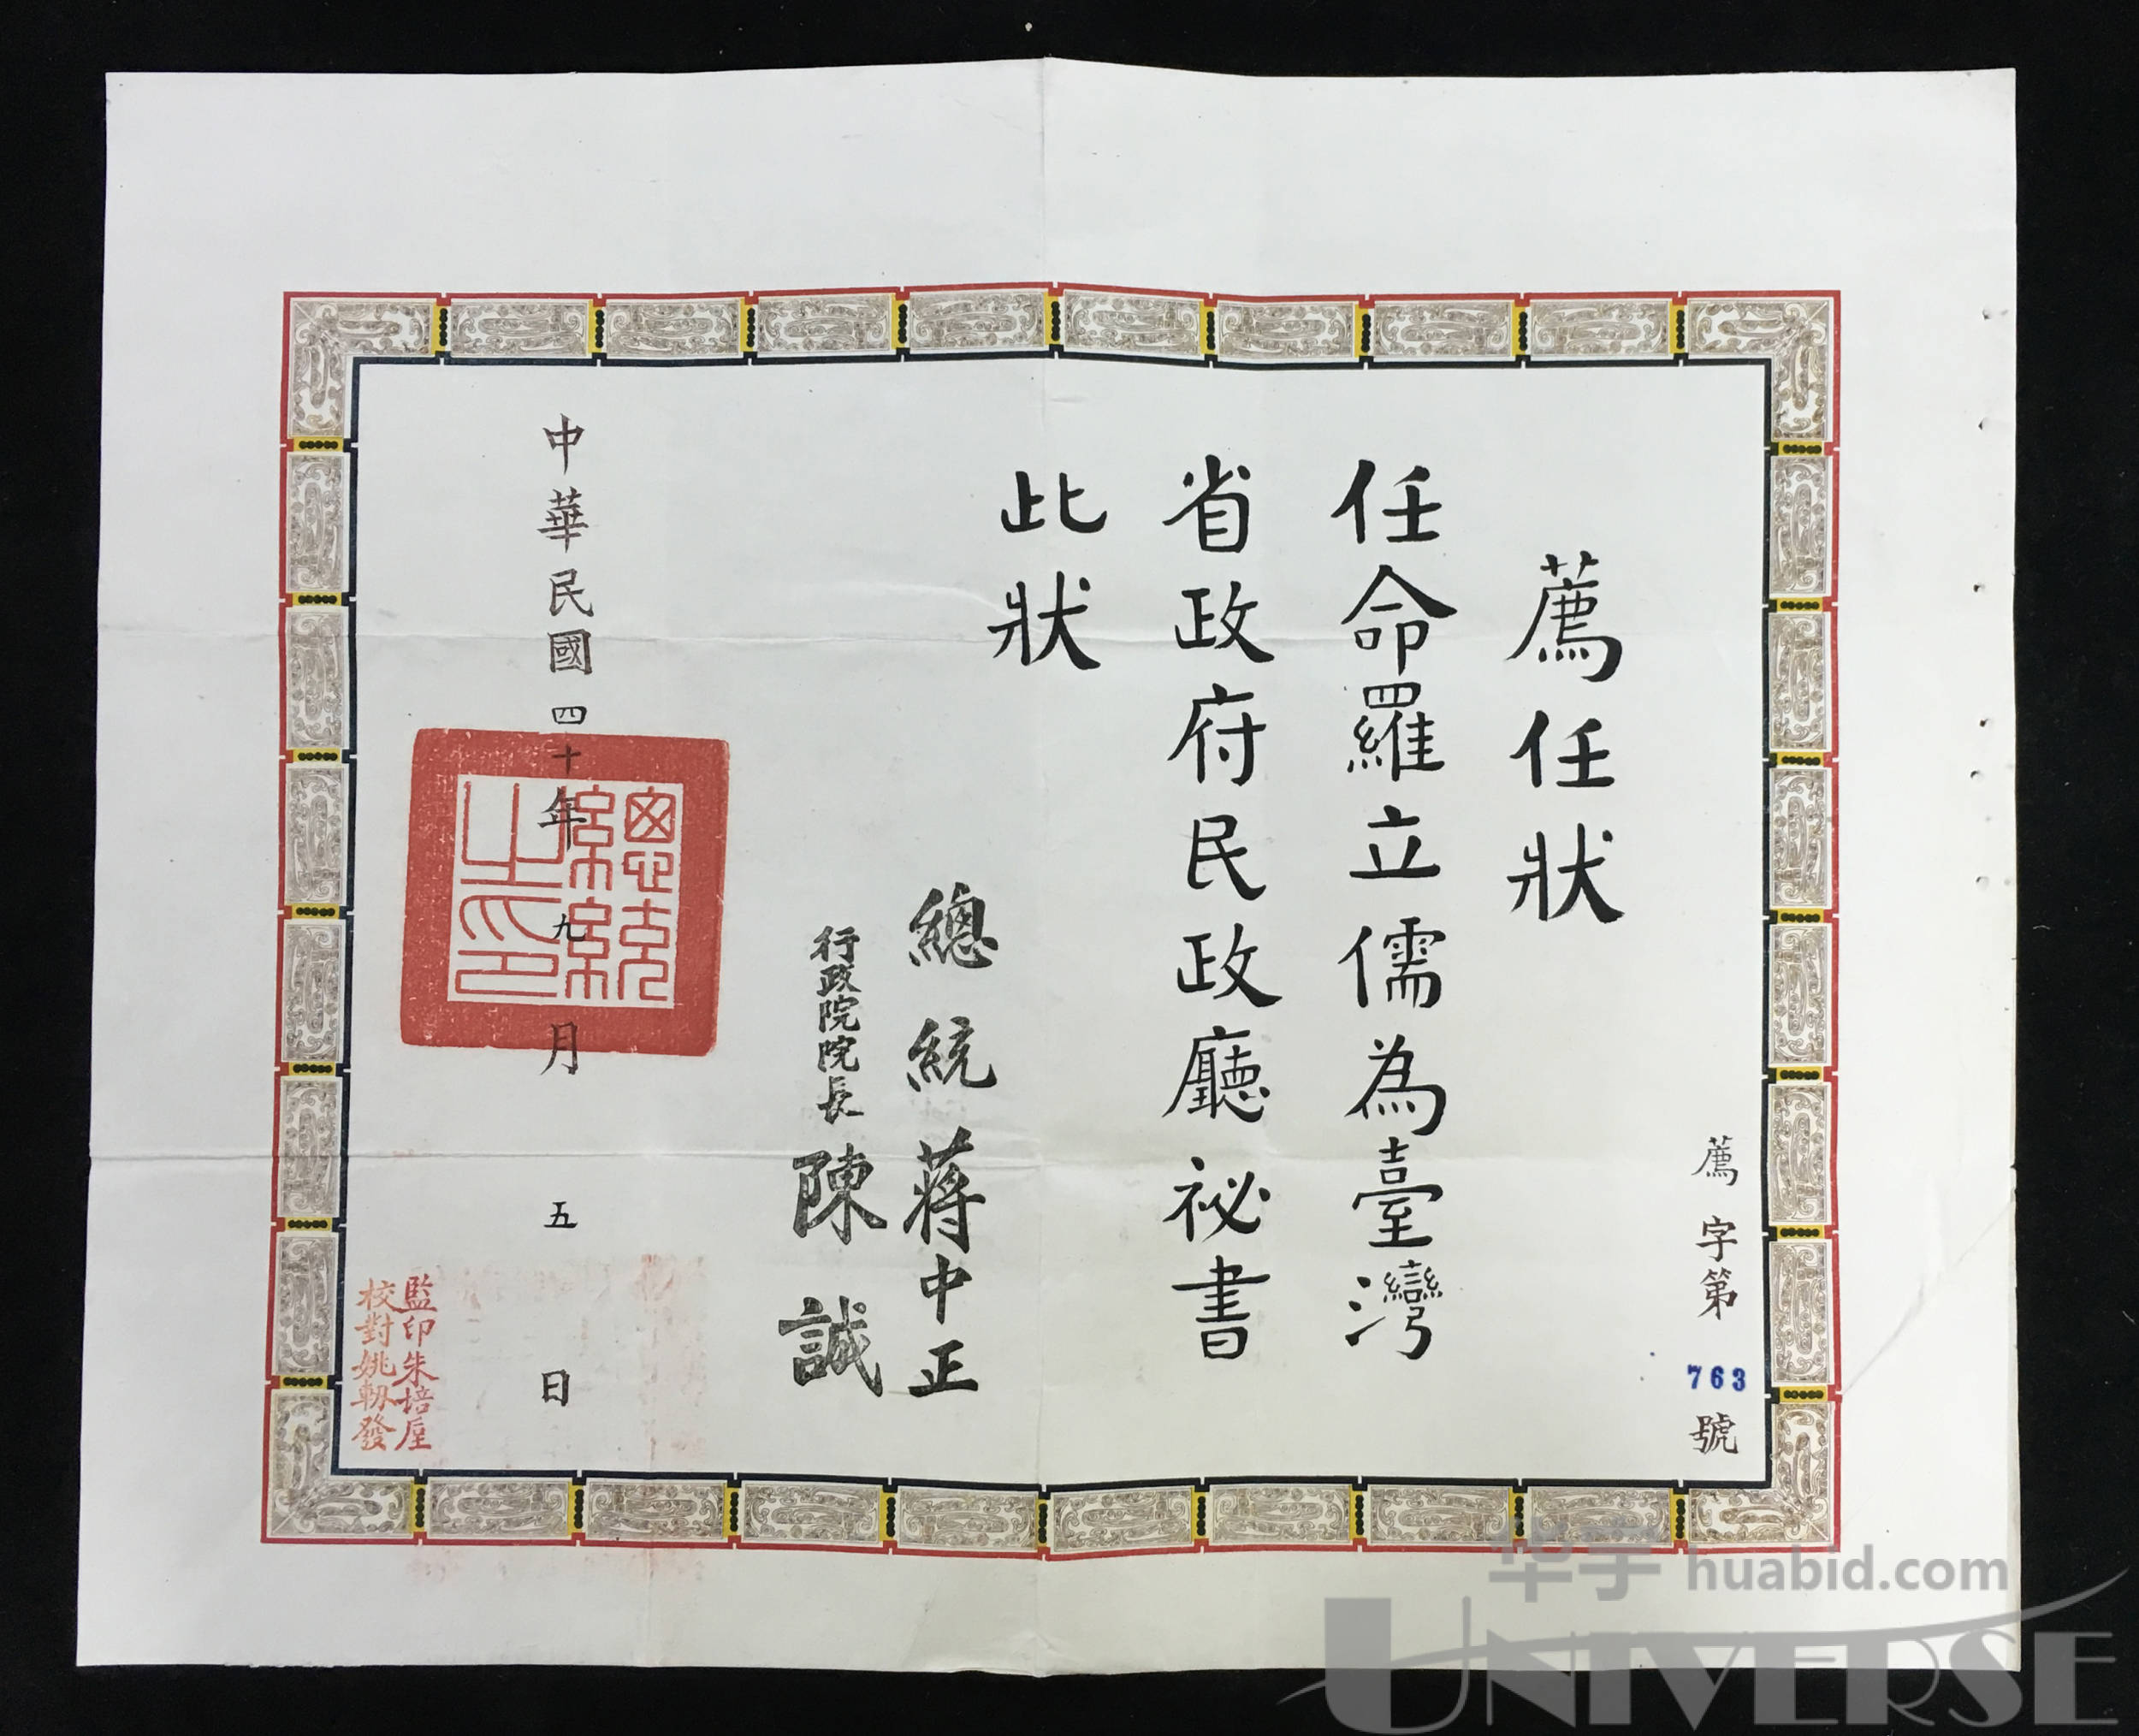 薦字第763號
薦任狀
任命羅立儒為臺灣
省政府民政廳祕書
此狀
總統蔣中正
行政院院長陳誠
中華民國四十年九月五日
總統之印
監印朱培垕
校對姚軔發
华宇 huabid.com
UNIVERSE